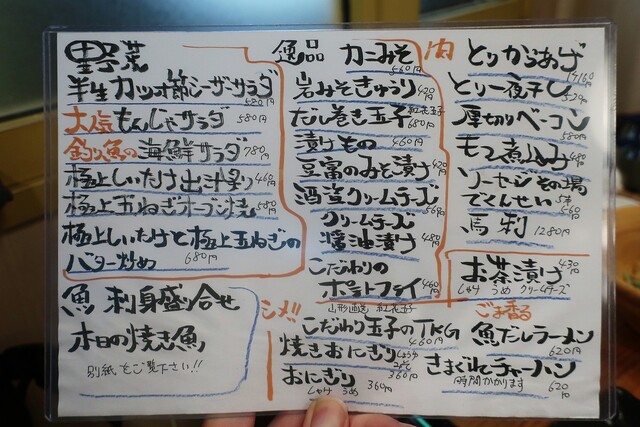 野菜
半生カツオ節シーザーサラダ
580円
大人気もんじゃサラダ 580円
釣り魚の海鮮サラダ 780円
極上しいたけ出汁炒り 460円
極上玉ねぎオーブン焼 580円
極上しいたけと極上玉ねぎの
バター炒め 680円
魚 刺身盛り合せ
本日の焼き魚
別紙をご覧下さい!!
逸品 カニみそ
560円
岩みそきゅうり 420円
だし巻き玉子 紅花玉子
680円
漬けもの 460円
豆富のみそ漬け 420円
酒盗クリームチーズ
560円
クリームチーズ
醤油漬け 480円
こだわりの
ポテトフライ 460円
シメ!!
山形直送 紅花玉子
こだわり玉子のTKG
460円
焼きおにぎり しょうゆ みそ
360円
おにぎり 360円
しゃけ うめ
肉 とりからあげ
とり一夜干し
厚切りベーコン
580円
もつ煮込み 480円
ソーセージその場
でくんせい 5本
560円
馬刺 1280円
お茶漬け 430円
しゃけ うめ クリームチーズ
ごま香る
魚だしラーメン
620円
きまぐれチャーハン
時間かかります 620円